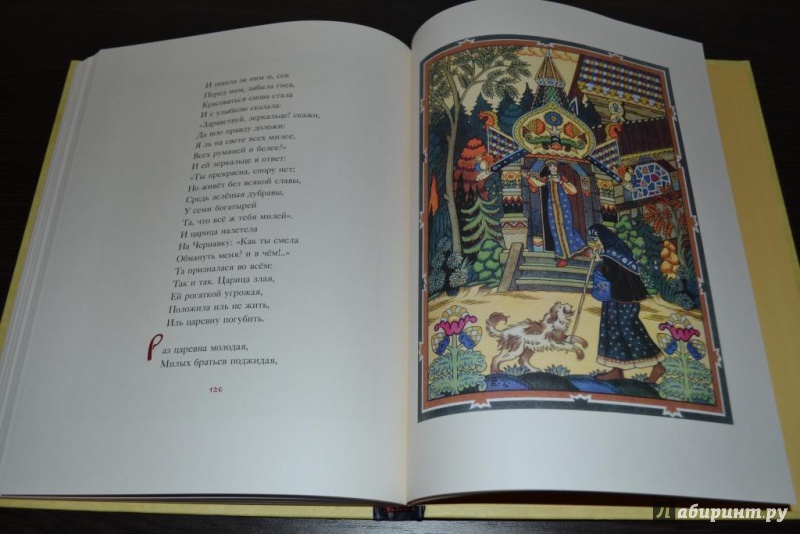 И пошла за ним и, сев
Перед ним, забыла гнев,
Красоваться снова стала
И с улыбкою сказала:
«Здравствуй, зеркальце! скажи,
Да всю правду доложи:
Я ль на свете всех милее,
Всех румяней и белее?»
И ей зеркальце в ответ:
«Ты прекрасна, спору нет;
Но живёт без всякой славы,
Средь зелёныя дубравы,
У семи богатырей
Та, что всё ж тебя милей».
И царица налетела
На Чернавку: «Как ты смела
Обмануть меня? и в чём!..»
Та призналася во всём:
Так и так. Царица злая,
Ей рогаткой угрожая,
Положила иль не жить,
Иль царевну погубить.
Раз царевна молодая,
Милых братьев поджидая,
120
Лабиринт.ру